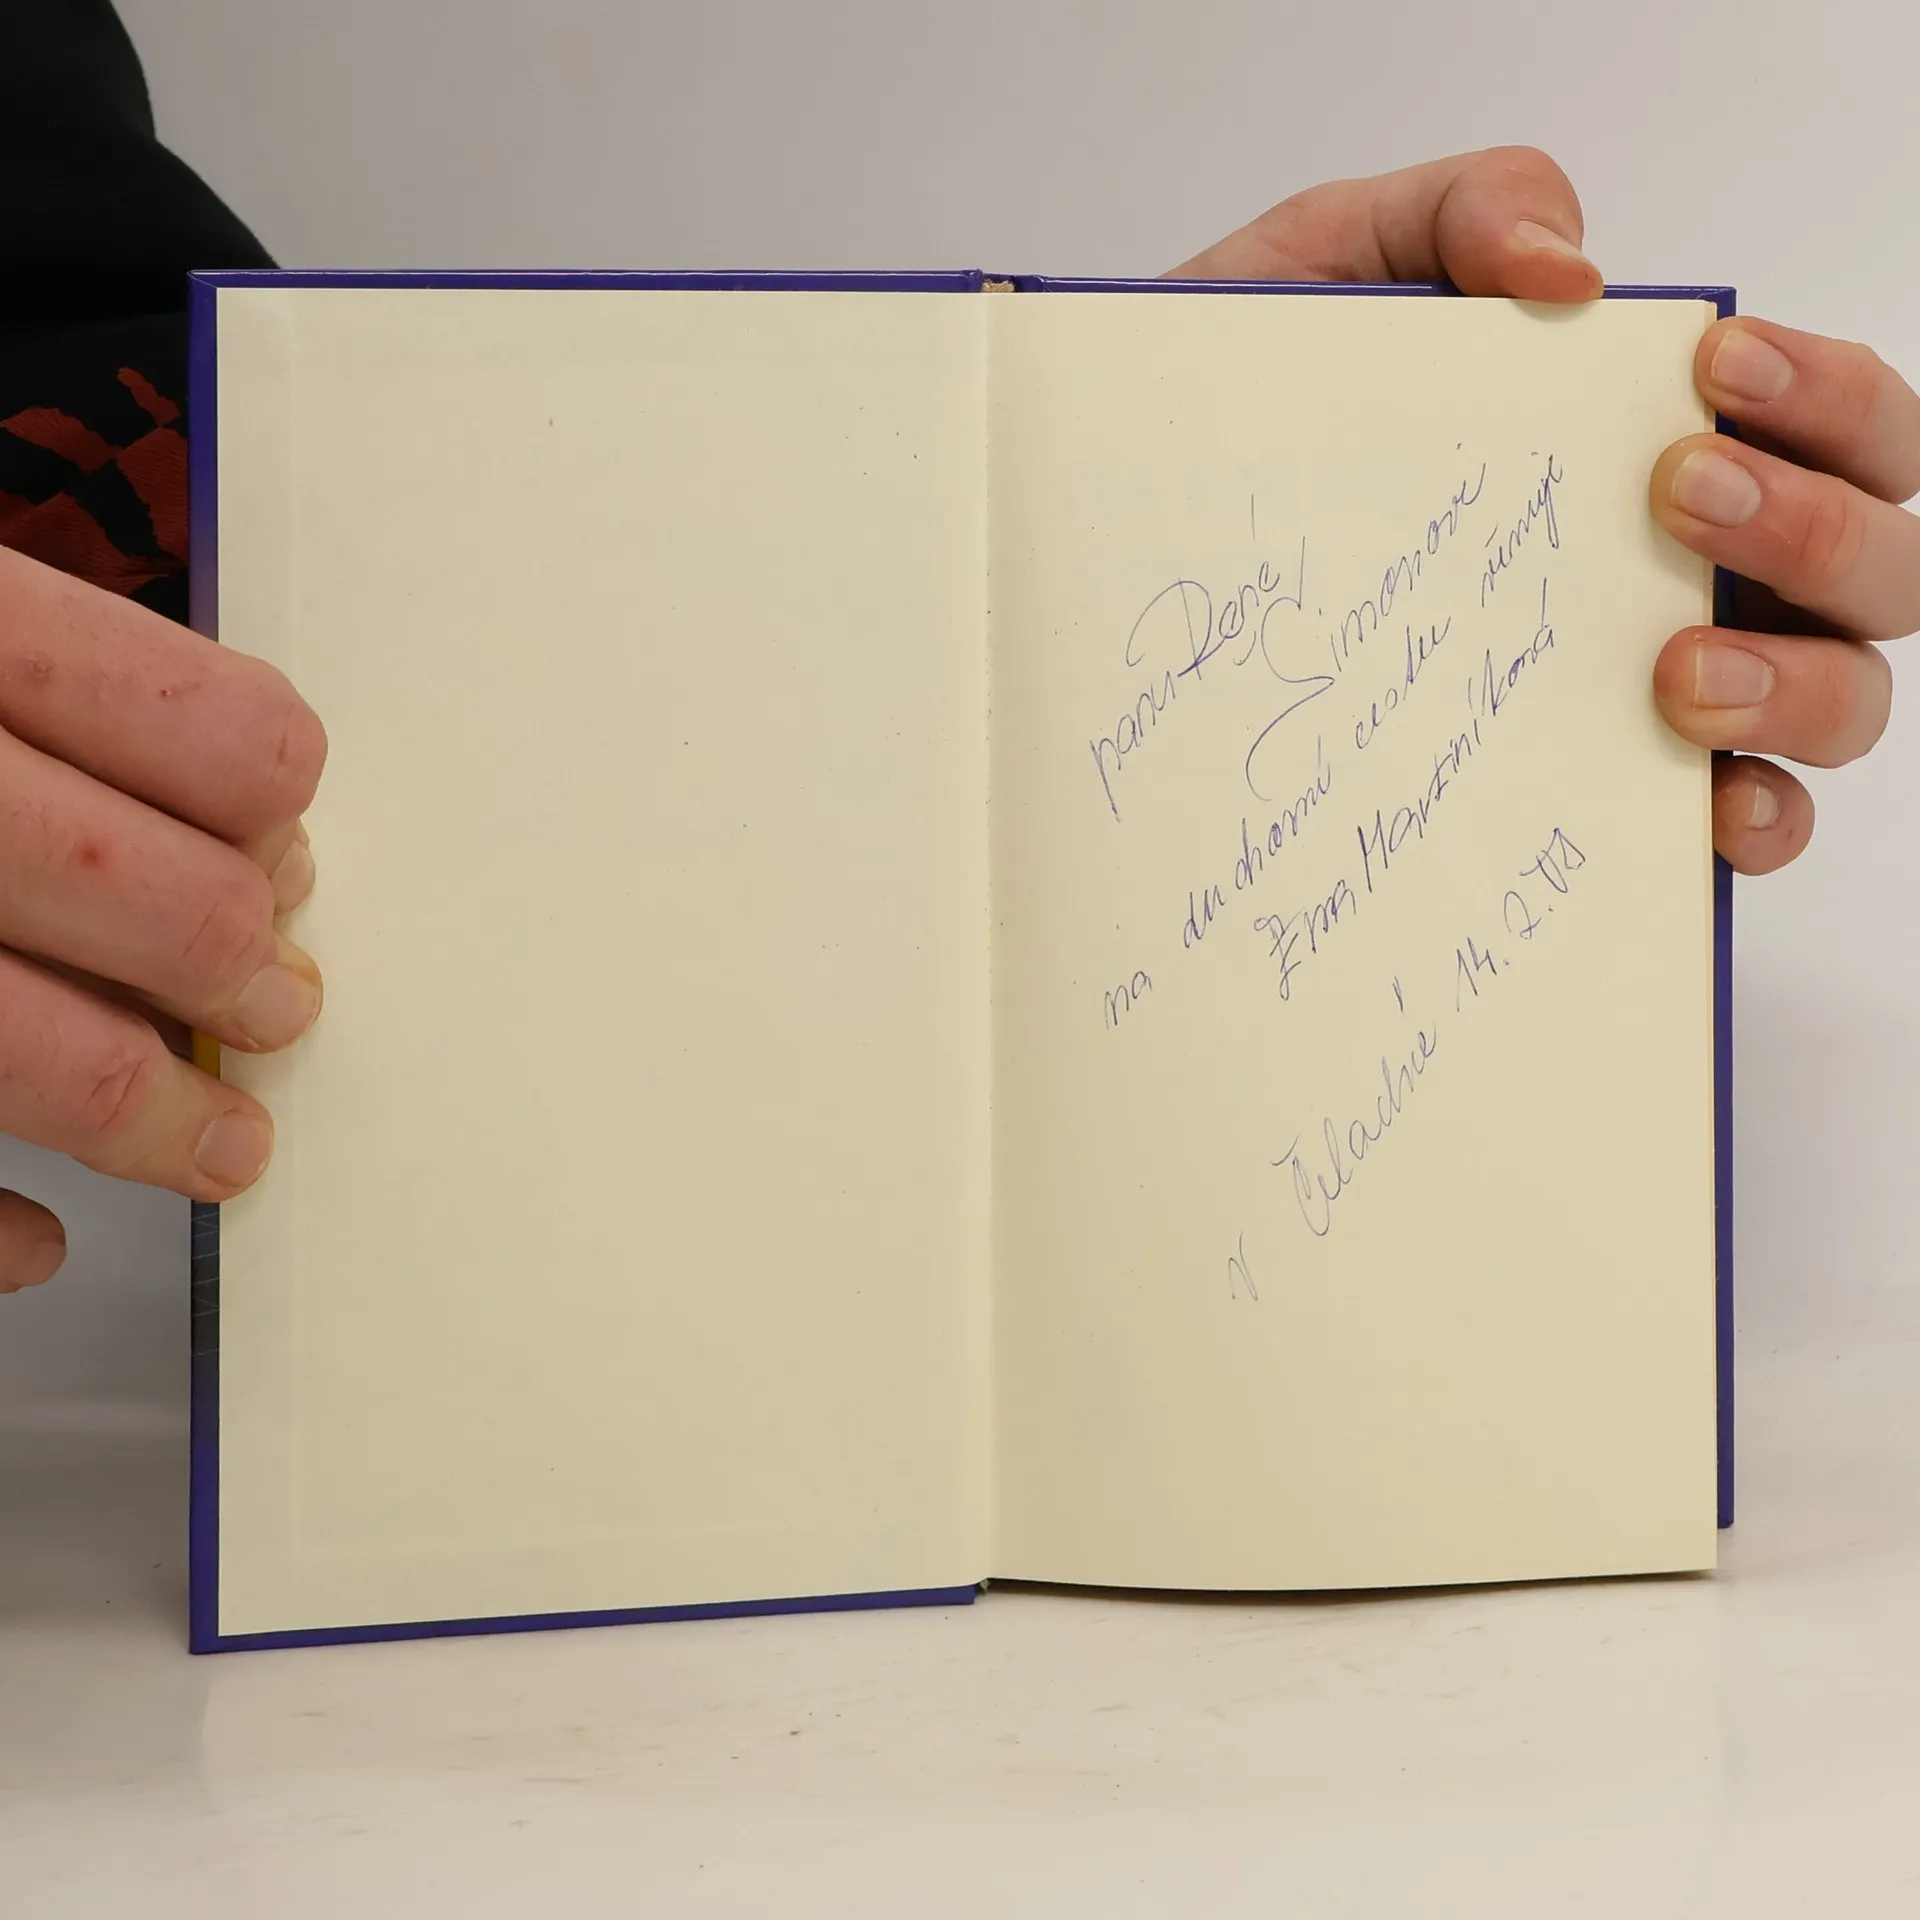 panu René
Šimonovi
na duchovní cestu věnuje
Eva Martiníková
v Čeladné 14. 2.